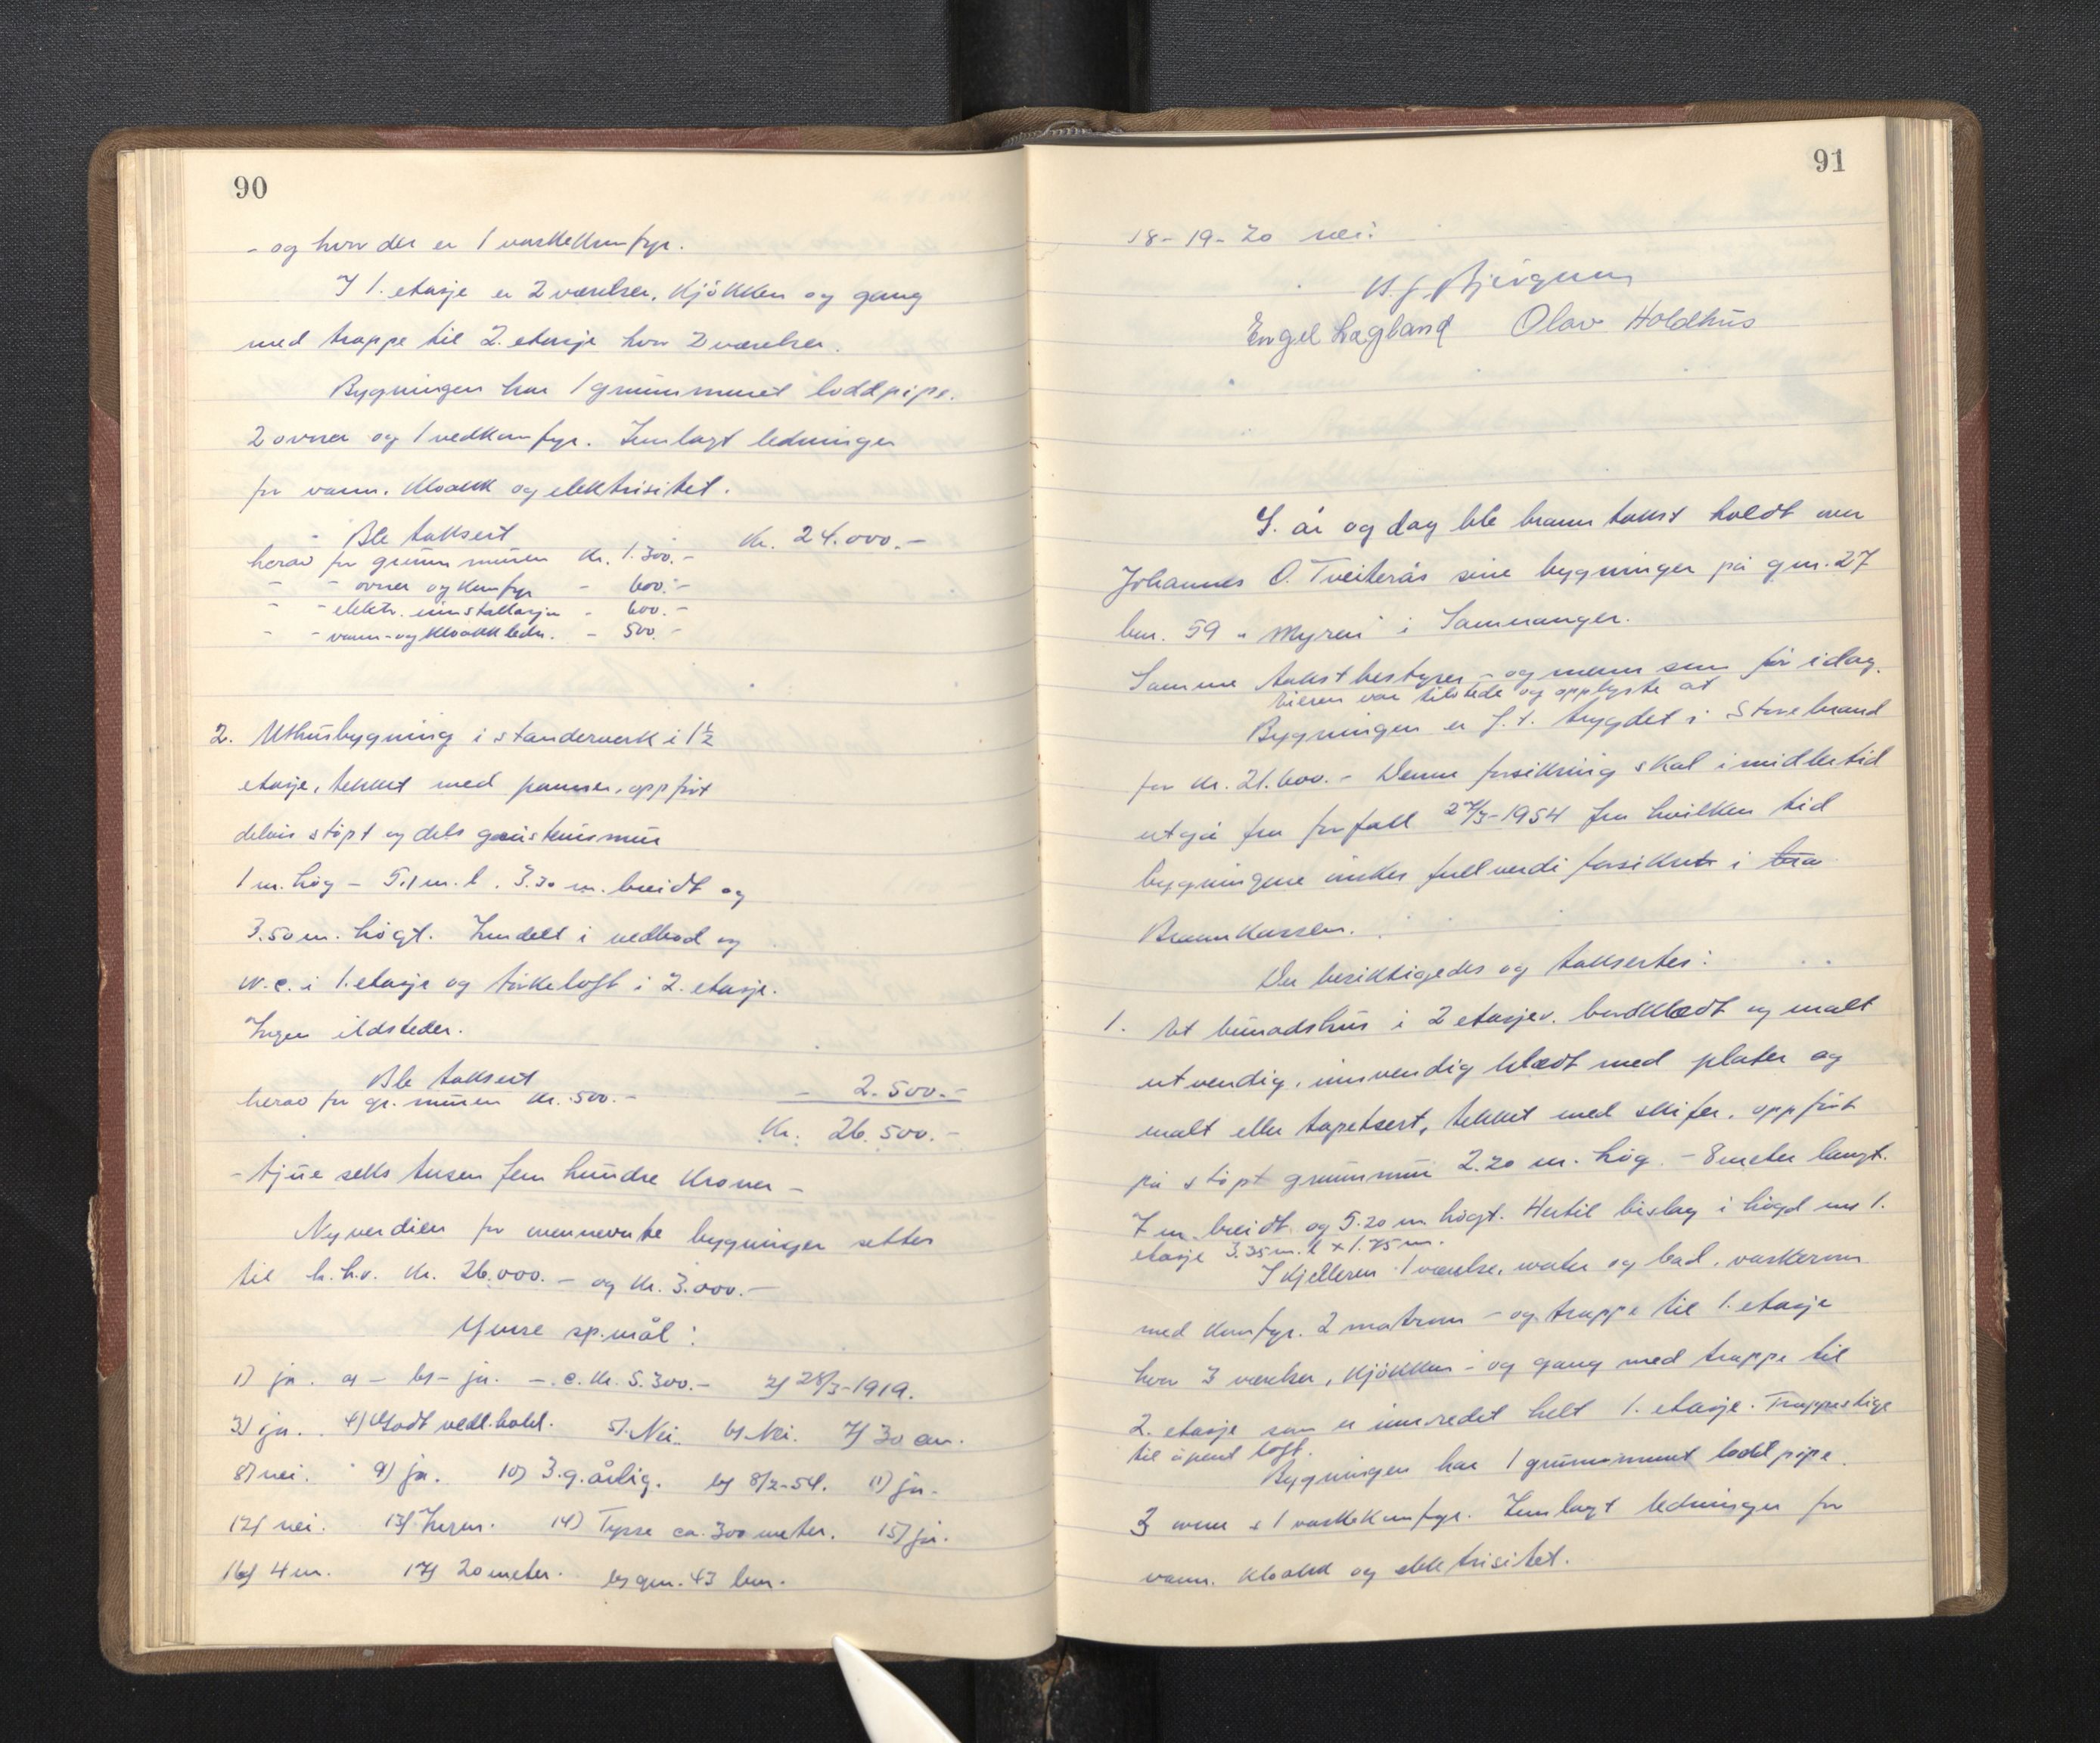 90
- og hvor der er 1 vaskekomfyr.
I 1. etasje er 2 værelser, kjökken og gang
med trappe til 2. etasje hvor 2 værelser.
Bygningen har 1 grunnmuret loddpipe.
2 ovner og 1 vedkomfyr. Innlagt ledninger
for vann, kloakk og elektrisitet.
Ble taksert Kr. 24.000.-
herav for grunnmuren Kr. 1.300.-
- - ovner og komfyr - 600.-
- - elektr. innstallasjon - 600.-
- - vann- og kloakkledn. - 500.-
2. Uthusbygning i standerverk i 1½
etasje, tekket med panner, oppfört
delvis stöpt og dels gråsteinsmur
1 m. hög - 5.1 m. l. 3.30 m. breidt og
3.50 m. högt. Inndelt i vedbod og
w.c. i 1. etasje og törkeloft i 2. etasje.
Ingen ildsteder.
Ble taksert - 2.500.-
herav for gr. muren Kr. 500.-
Kr. 26.500.-
- tjue seks tusen fem hundre kroner -
Nyverdien for ovennevnte bygninger settes
til h.h.v. Kr. 26.000.- og Kr. 3.000.-
Ymse sp.mål:
1) ja. a - b) - ja. - c. Kr. 5.300.- 2) 28/3-1919.
3) ja. 4) Godt vedl.hold. 5) Nei. 6) Nei. 7) 30 cm.
8) nei. 9) ja. 10) 3.g. årlig. b) 8/2-54. 11) ja.
12) nei. 13) Ingen. 14) Tysse ca. 300 meter. 15) ja.
16) 4 m. 17) 20 meter. b) gnr. 43 bnr.
91
18-19-20 nei.
Engel Lagland Olav Holdhus
I. år og dag ble branntakst holdt over
Johannes O. Tveiterås sine bygninger på gnr. 27
bnr. 59 "Myren" i Samnanger.
Samme takstbestyrer - og menn som för idag.
Eieren var tilstede og opplyste at
Bygningen er f.t. trygdet i Storebrand
for Kr. 21.600.- Denne forsikring skal imidlertid
utgå fra forfall 27/3-1954 fra hvilken tid
bygningene önskes fullverdi forsikret i bra
Brannkassen.
Der besiktigedes og taksertes:
1. Et bunadshus i 2 etasjer. bordklædt og malt
utvendig, innvendig klædt med plater og
malt eller tapetsert, tekket med skifer, oppfört
på stöpt grunnmur 2.20 m. hög - 8 meter langt.
7 m. breidt og 5.20 m högt. Hertil bislag i högd m 1.
etasje 3.35 m. l x 1.75 m.
I kjelleren 1 værelse, water og bad, vaskerom
med komfyr. 2 matrom - og trappe til 1. etasje
hvor 3 værelser, kjökken - og gang med trappe til
2. etasje som er innredet helt 1. etasje. Trappestige
til åpent loft.
Bygningen har 1 grunnmuret loddpipe.
3 ovner + 1 vaskekomfyr. Innlagt ledninger for
vann, kloakk og elektrisitet.